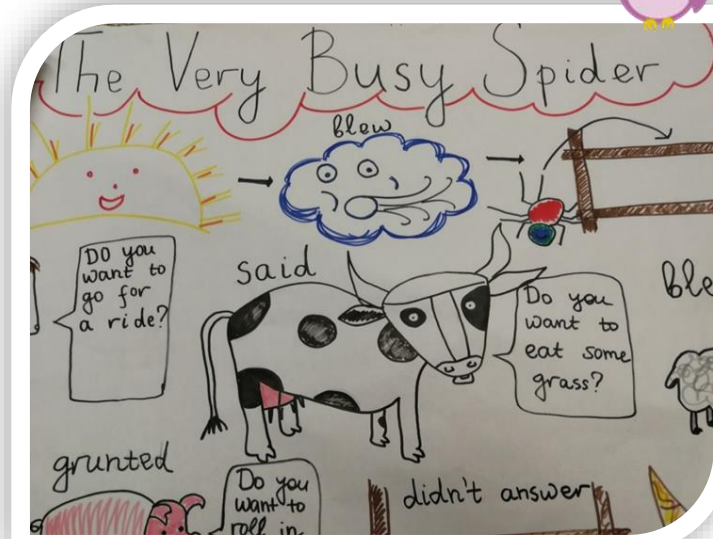 The Very Busy Spider
blew
DO you
want to
go for
a ride?
said
Do you
want to
eat some
grass?
grunted
Do you
want to
roll in
didn't answer